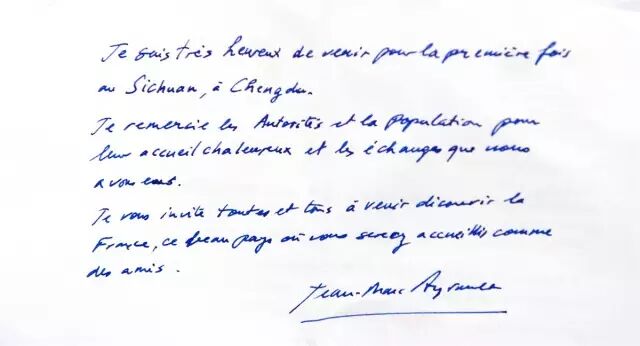 Je suis très heureux de venir pour la première fois
au Sichuan, à Chengdu.
Je remercie les Autorités et la Population pour
leur accueil chaleureux et les échanges que nous
avons eus.
Je vous invite toutes et tous à venir découvrir la
France, ce beau pays où vous serez accueillis comme
des amis.
Jean-Marc Ayrault